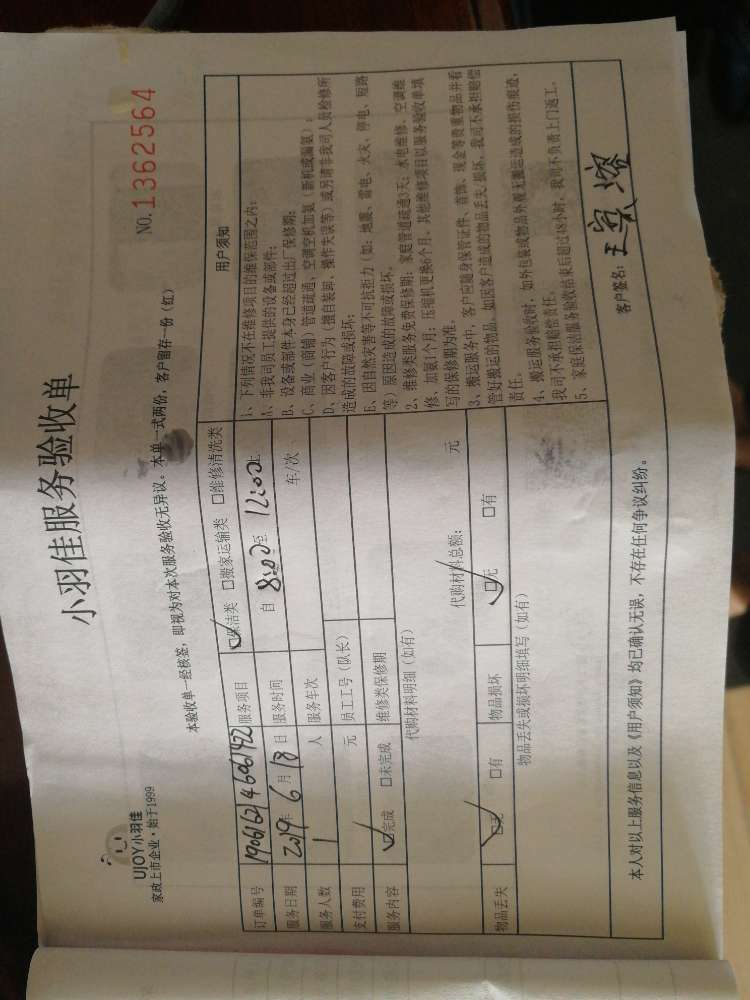 UJOY小羽佳
家政上市企业·始于1999
小羽佳服务验收单
NO. 1362564
本验收单一经核签，即视为对本次服务验收无异议。本单一式两份，客户留存一份（红）
订单编号 服务项目 ☑保洁类 □搬家运输类 □维修清洗类
服务日期 2019年 6 月 18 日 服务时间 自 8:00 至 12:00止
服务人数 1 人 服务车次 车/次
支付费用 元 员工工号（队长）
服务内容 ☑完成 □未完成 维修类保修期
代购材料明细（如有）
代购材料总额： 元
物品丢失 ☑无 □有 物品损坏 ☑无 □有
物品丢失或损坏明细填写（如有）
用户须知
1、下列情况不在维修项目的维保范围之内：
A、非我司员工提供的设备或部件；
B、设备或部件本身已经超过出厂保修期；
C、商业（商铺）管道疏通、空调空机加氨（新机或漏氨）；
D、因客户行为（擅自装卸、操作失误等）或另请非我司人员检修所
造成的故障或损坏；
E、因自然灾害等不可抗拒力（如：地震、雷电、火灾、停电、短路
等）原因造成的故障或损坏。
2、维修类服务免费保修期：家庭管道疏通3天；水电维修、空调维
修、加氨1个月；压缩机更换6个月。其他维修项目以服务验收单填
写的保修期为准。
3、搬运服务中，客户应随身保管证件、首饰、现金等贵重物品并看
管好搬运的物品，如因客户造成的物品丢失、损坏，我司不承担赔偿
责任。
4、搬运服务验收时，如外包装或物品外观无搬运造成的损伤痕迹，
我司不承担赔偿责任。
5、家庭保洁服务验收结束后超过48小时，我司不负责上门返工。
本人对以上服务信息以及《用户须知》均已确认无误，不存在任何争议纠纷。
客户签名：